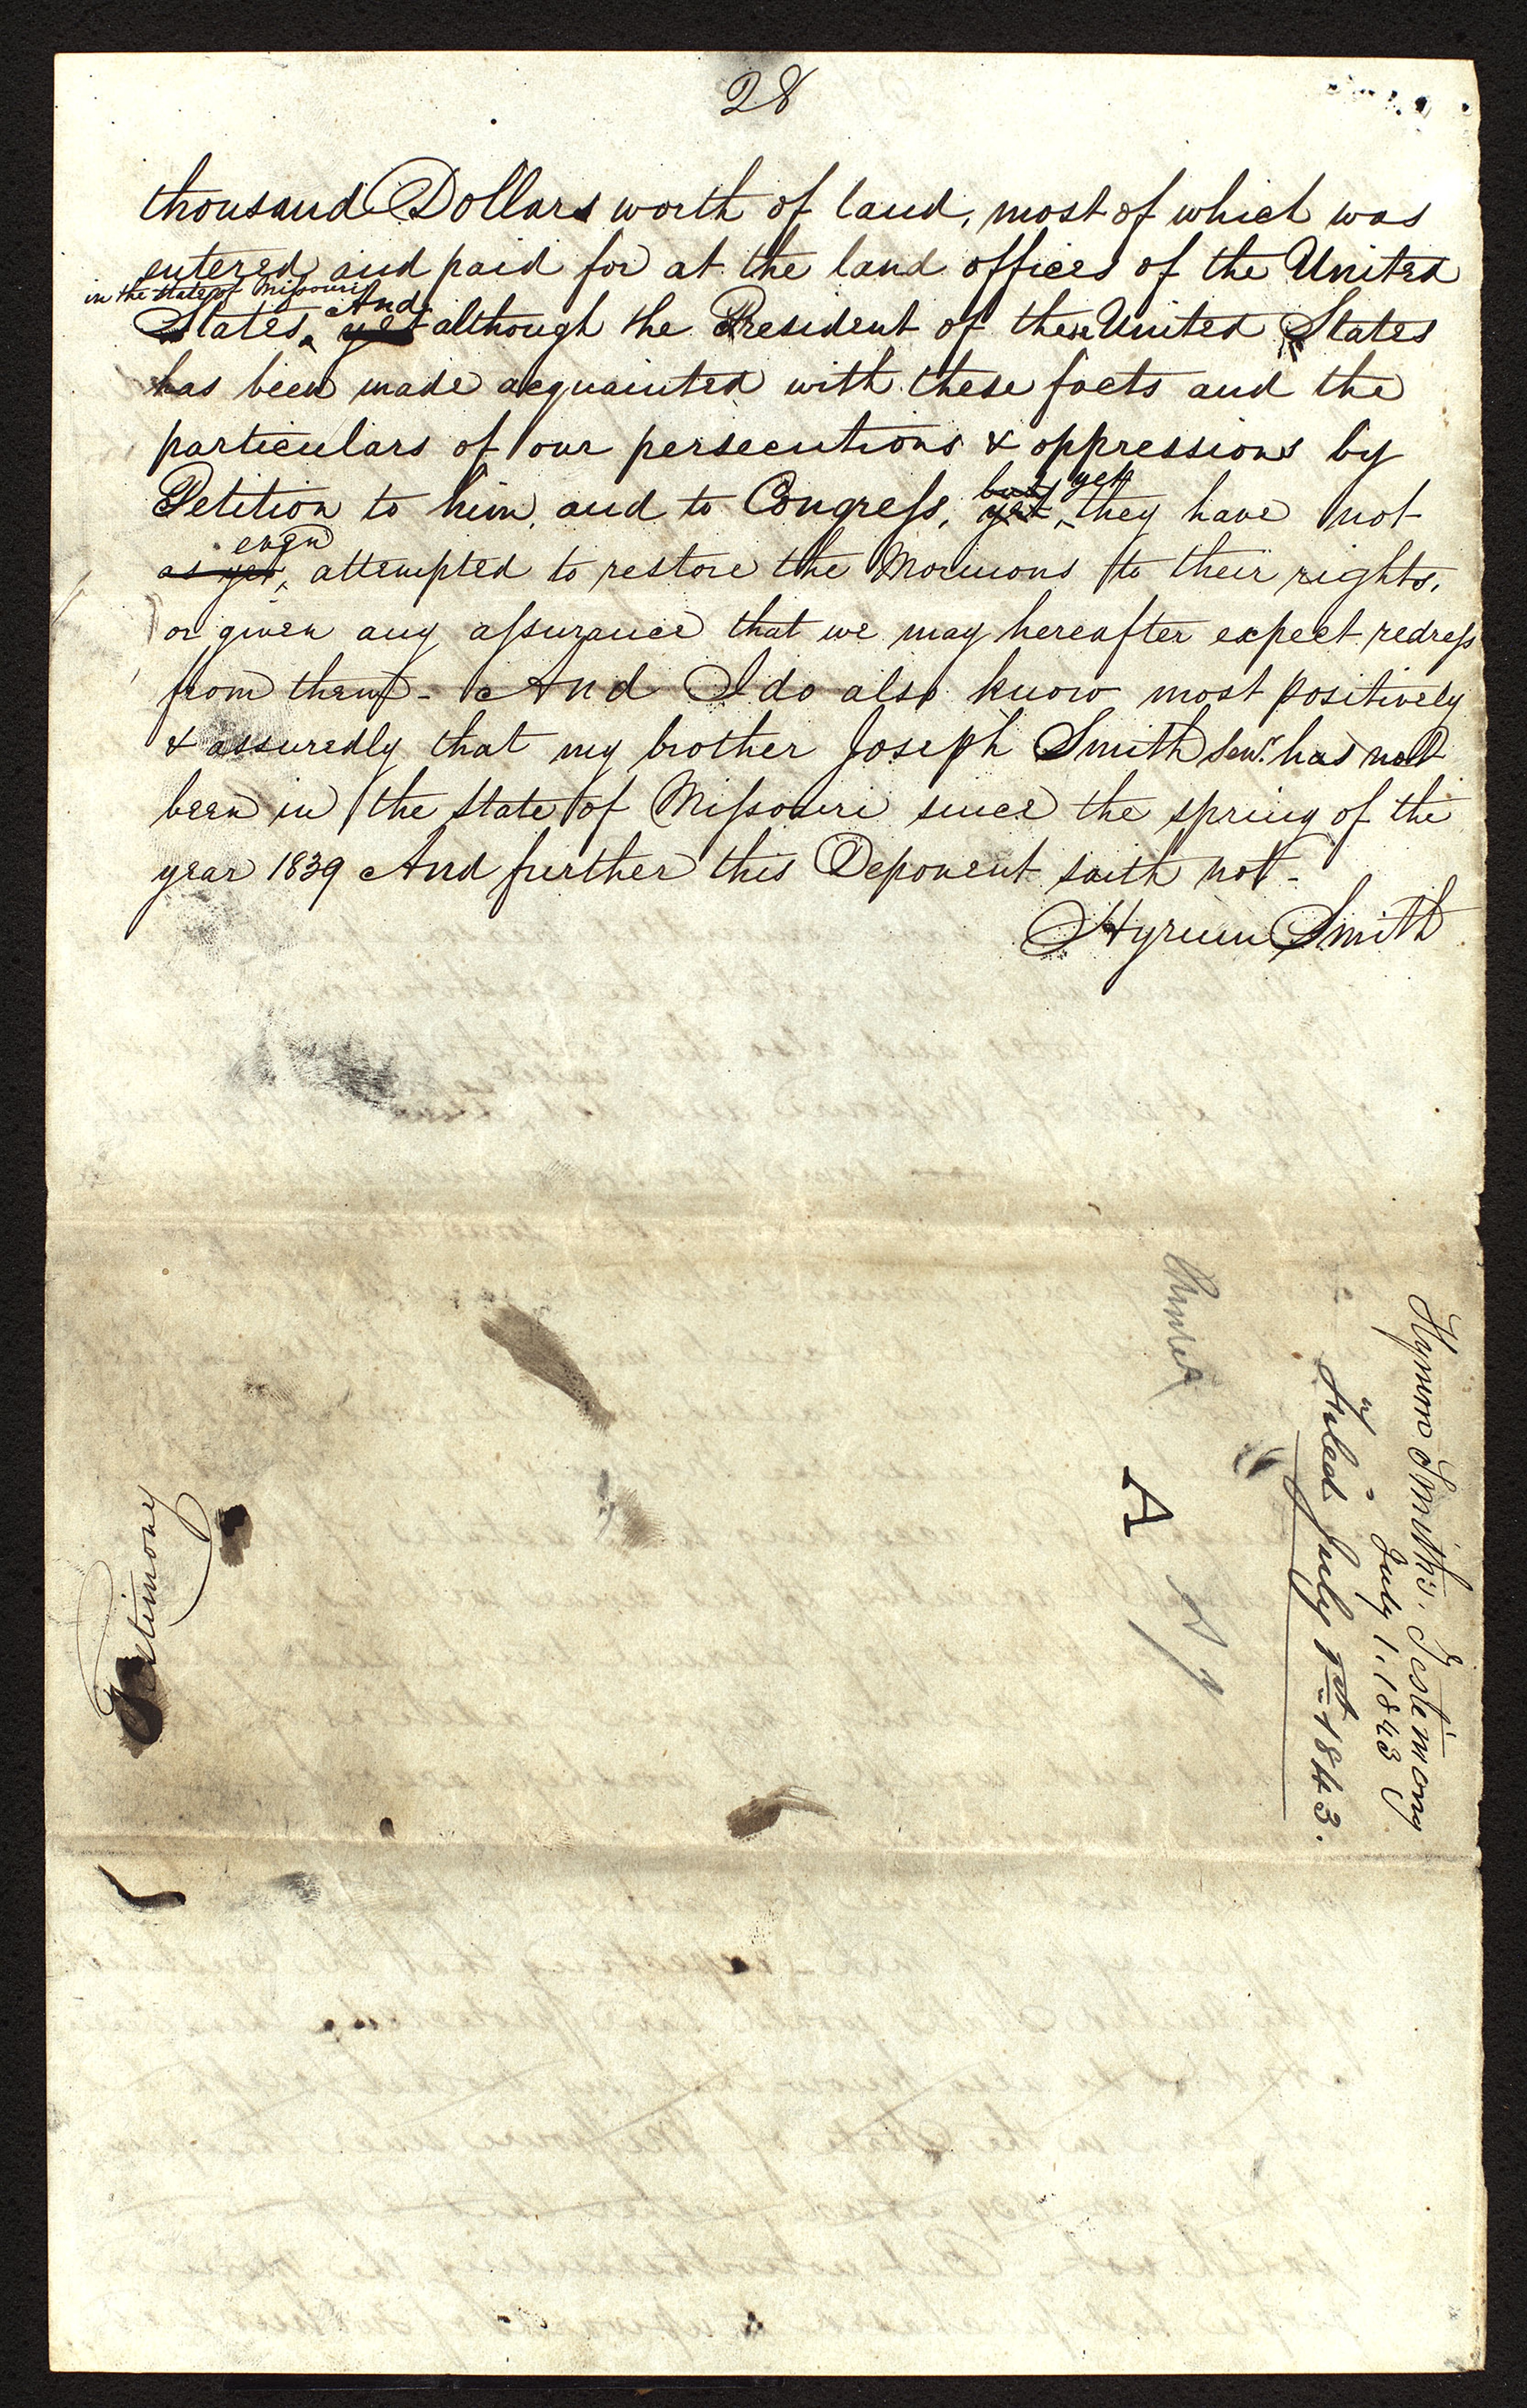 28
thousand Dollars worth of land, most of which was
entered and paid for at the land offices of the United
in the state of Missouri And
States, yet although the President of the United States
has been made acquainted with these facts and the
particulars of our persecutions & oppressions by
but yet
Petition to him, and to Congress, yet, they have not
even
as yet, attempted to restore the Mormons to their rights,
or given any assurance that we may hereafter expect redress
from them - And I do also know most positively
& assuredly that my brother Joseph Smith senr. has not
been in the state of Missouri since the spring of the
year 1839 And further this Deponent saith not -
Hyrum Smith
Hyrum Smith's. Testimony
July 1, 1843
Filed July 1st 1843.
A
Testimony